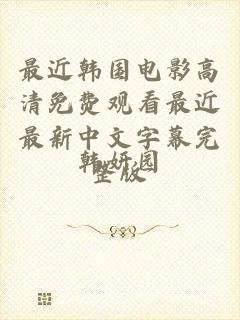 最近韩国电影高
清免费观看最近
最新中文字幕完
整版
韩妍园